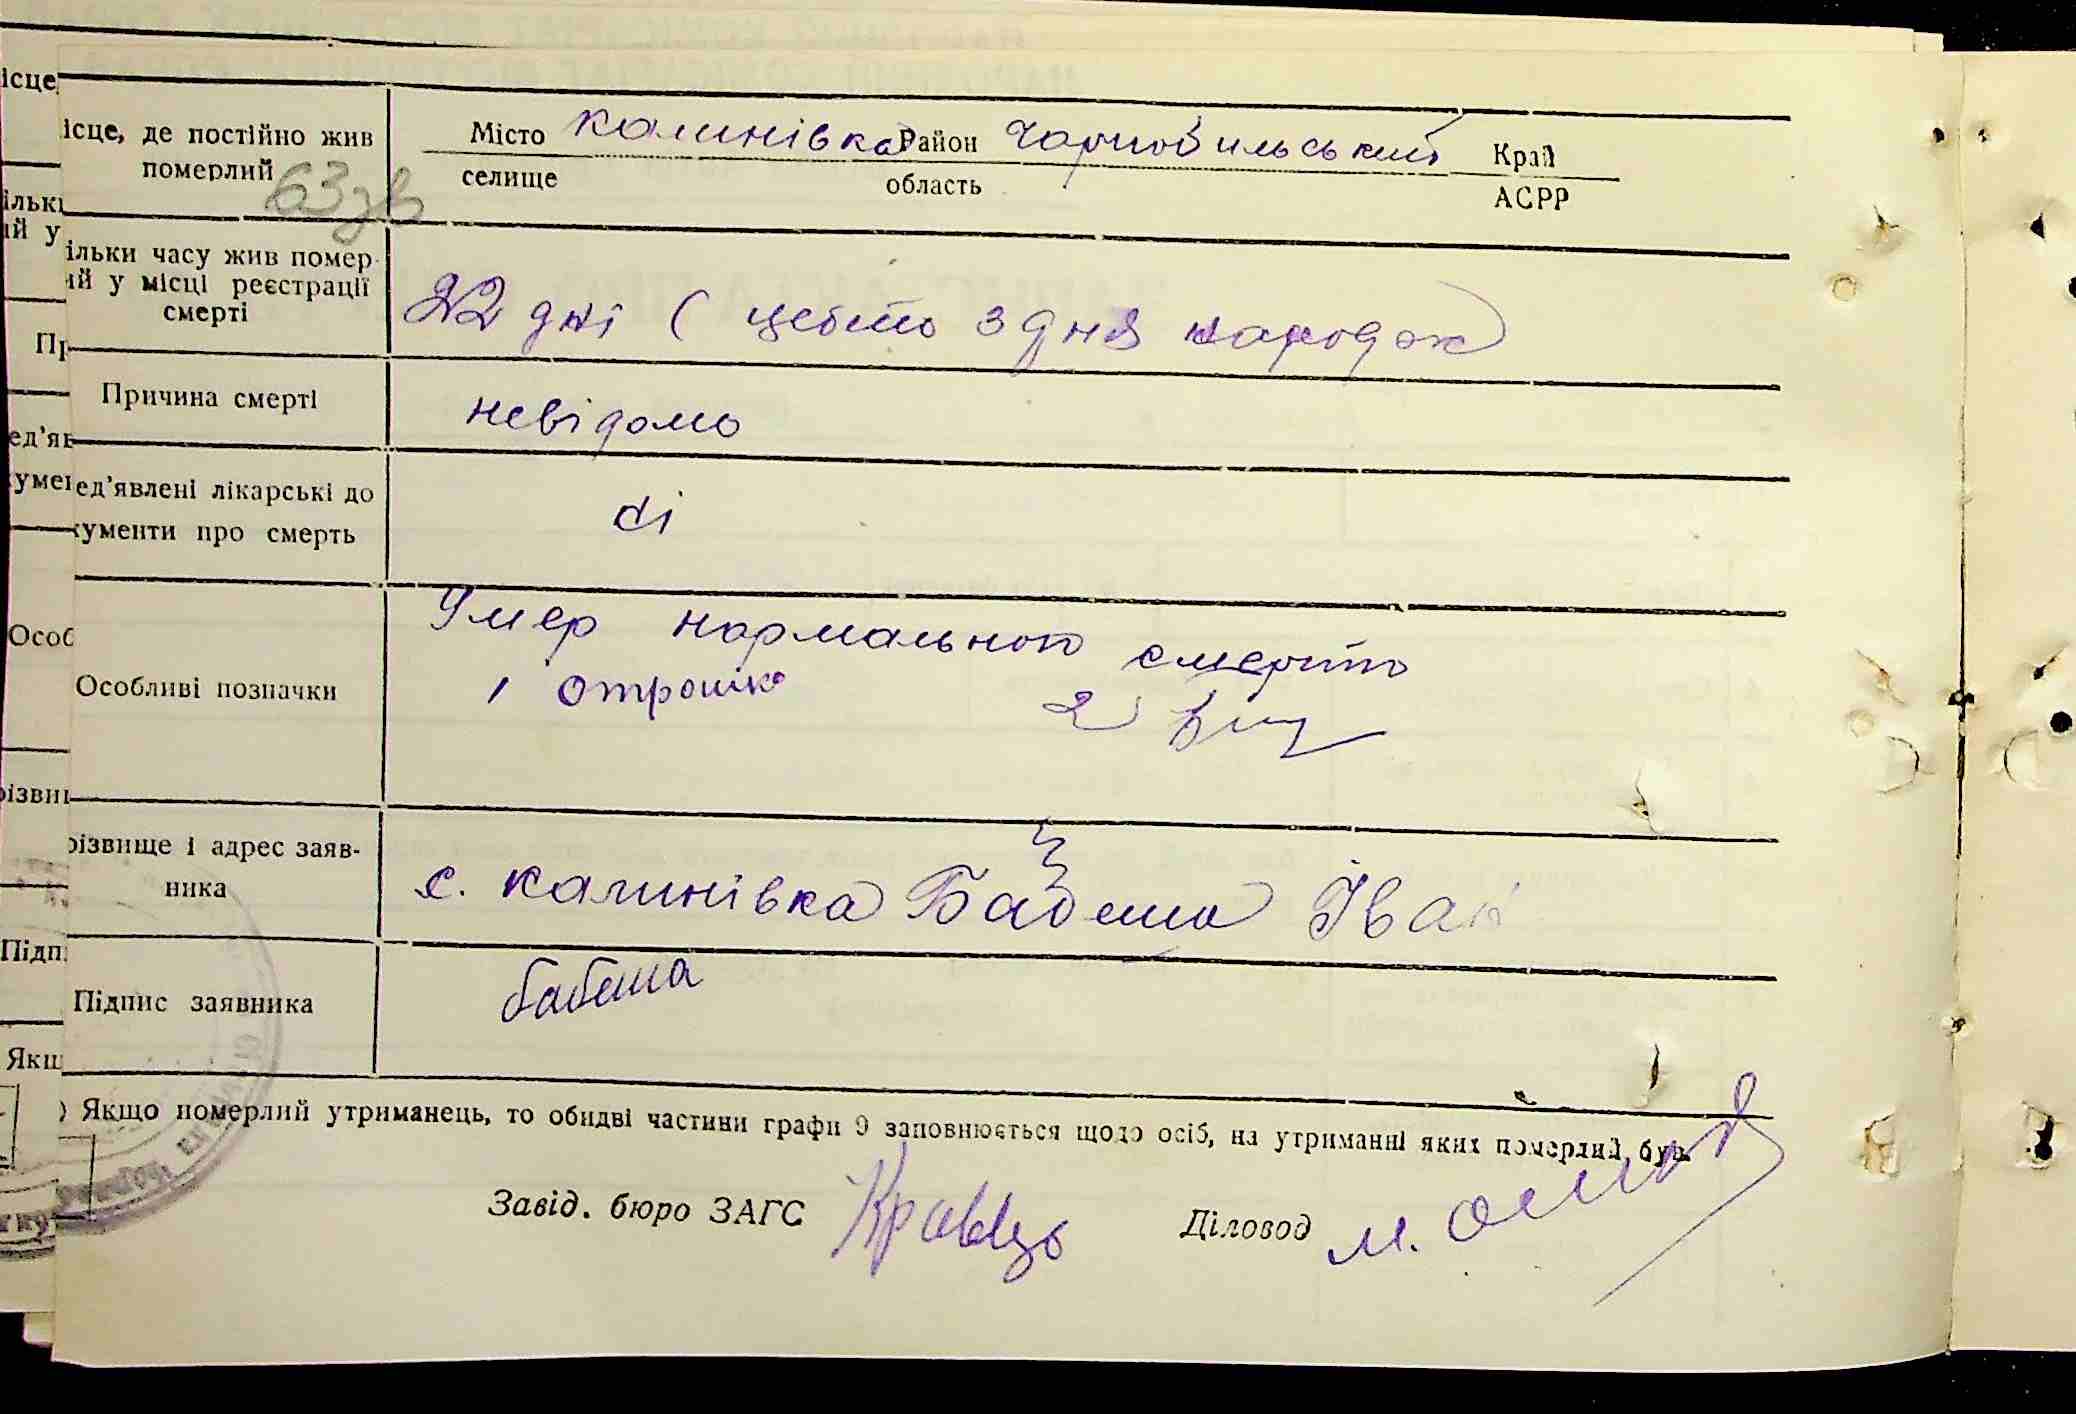 ісце, де постійно жив
померлий
63зв
Місто Калинівка Район Чорнобильський Край
селище область АСРР
ільки часу жив помер
ий у місці реєстрації
смерті
22 дні ( цебто з дня народж
Причина смерті
невідомо
ед'явлені лікарські до
кументи про смерть
ні
Особливі позначки
Умер нормальною смертю
і отрошко
різвище і адрес заяв-
ника
с. Калинівка Бабеша Іван
Підпис заявника
бабеша
) Якщо померлий утриманець, то обидві частини графи 9 заповнюється щодо осіб, на утриманні яких померлий був.
Завід. бюро ЗАГС Кравець Діловод М.